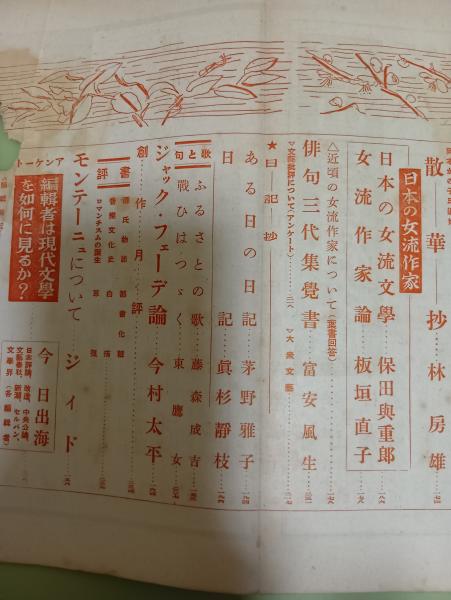 散華抄 林房雄
日本の女流作家
日本の女流文學 保田與重郎
女流作家論 板垣直子
△近頃の女流作家について(葉書回答)
俳句三代集覺書 富安風生
▽文藝批評について(アンケート) ▽大衆文藝
★日記抄
ある日の日記 茅野雅子
日記 眞杉靜枝
歌と句
ふるさとの歌 藤森成吉
戰ひはつゞく 東鷹女
ジャック・フェーデ論 今村太平
創作月評
書評
ロマンチスムの誕生
モンテーニュについて ジィド
アンケート
編輯者は現代文學を如何に見るか?
今日出海
日本評論、改造、中央公論、
文藝春秋、新潮、セルパン、
文學界(各編輯者)